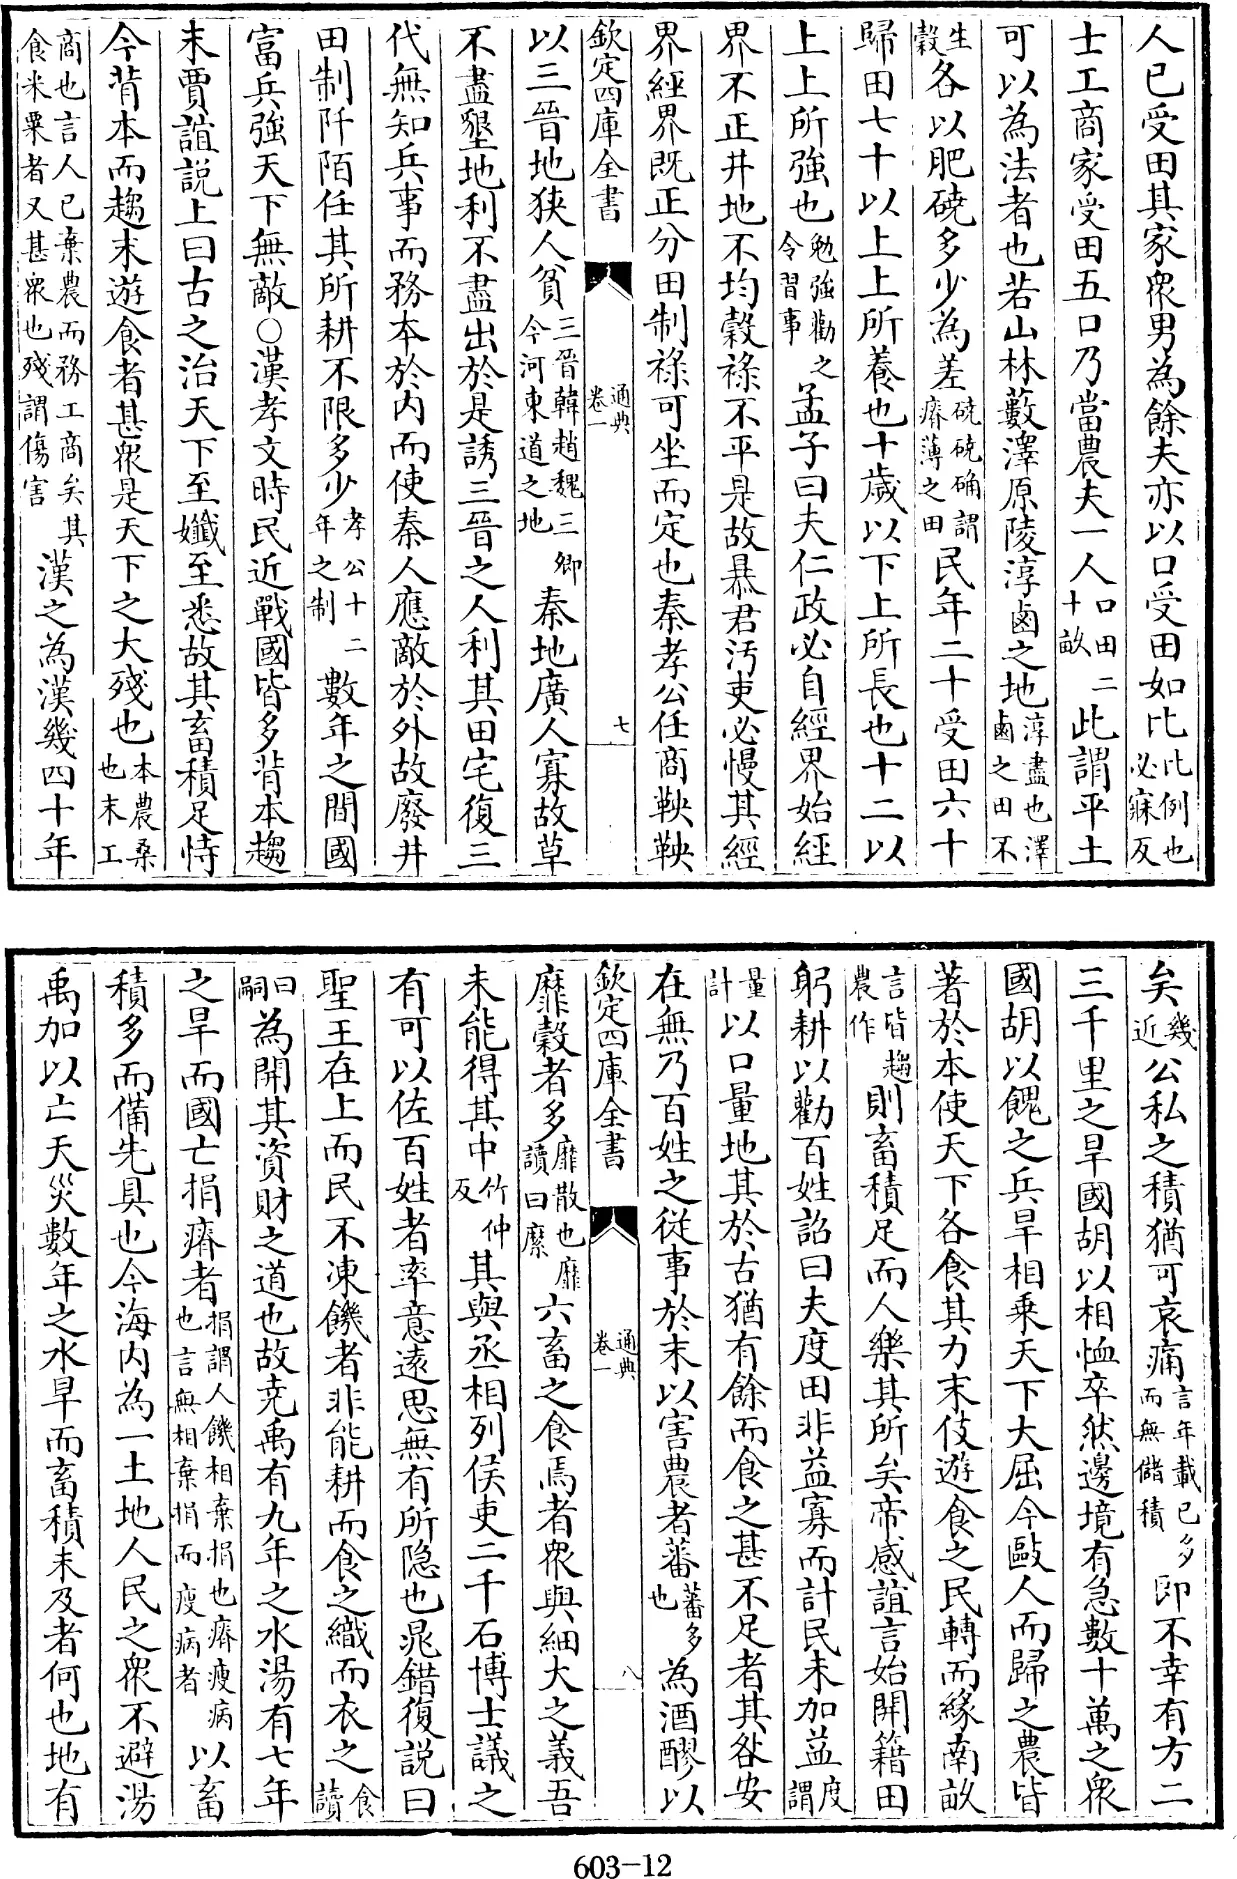 人已受田其家衆男為餘夫亦以口受田如比比例也必寐反
士工商家受田五口乃當農夫一人口田二十畝此謂平土
可以為法者也若山林藪澤原陵淳鹵之地淳盡也澤鹵之田不
生穀各以肥磽多少為差磽磽确謂瘠薄之田民年二十受田六十
歸田七十以上上所養也十歲以下上所長也十二以
上上所強也勉強勸之令習事孟子曰夫仁政必自經界始經
界不正井地不均穀祿不平是故暴君汚吏必慢其經
界經界既正分田制祿可坐而定也秦孝公任商鞅鞅
欽定四庫全書 通典 卷一 七
以三晉地狹人貧三晉韓趙魏三卿今河東道之地秦地廣人寡故草
不盡墾地利不盡出於是誘三晉之人利其田宅復三
代無知兵事而務本於內而使秦人應敵於外故廢井
田制阡陌任其所耕不限多少孝公十二年之制數年之間國
富兵強天下無敵○漢孝文時民近戰國皆多背本趨
末賈誼説上曰古之治天下至孅至悉故其畜積足恃
今背本而趨末遊食者甚衆是天下之大殘也本農桑也末工
商也言人已棄農而務工商矣其食米粟者又甚衆也殘謂傷害漢之為漢幾四十年
矣幾近公私之積猶可哀痛言年載已多而無儲積即不幸有方二
三千里之旱國胡以相恤卒然邊境有急數十萬之衆
國胡以餽之兵旱相乘天下大屈今毆人而歸之農皆
著於本使天下各食其力末伎遊食之民轉而緣南畝
言皆趨農作則畜積足而人樂其所矣帝感誼言始開籍田
躬耕以勸百姓詔曰夫度田非益寡而計民未加益度謂
量計以口量地其於古猶有餘而食之甚不足者其咎安
在無乃百姓之從事於末以害農者蕃蕃多也為酒醪以
欽定四庫全書 通典 卷一 八
靡穀者多靡散也靡讀曰縻六畜之食焉者衆與細大之義吾
未能得其中竹仲反其與丞相列侯吏二千石博士議之
有可以佐百姓者率意遠思無有所隐也鼂錯復説曰
聖王在上而民不凍饑者非能耕而食之織而衣之食讀
曰嗣為開其資財之道也故堯禹有九年之水湯有七年
之旱而國亡捐瘠者捐謂人饑相棄捐也瘠瘦病也言無相棄捐而瘦病者以畜
積多而備先具也今海內為一土地人民之衆不避湯
禹加以亡天災數年之水旱而畜積未及者何也地有
603-12